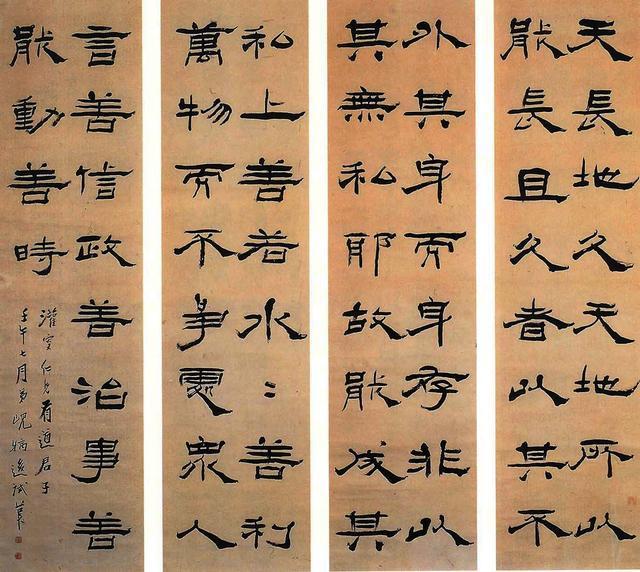 天長地久天地所以
能長且久者以其不
外其身而身存非以
其無私耶故能成其
私上善若水〻善利
萬物而不爭處眾人
言善信政善治事善
能動善時
仁兄有道君子
壬午七月弟